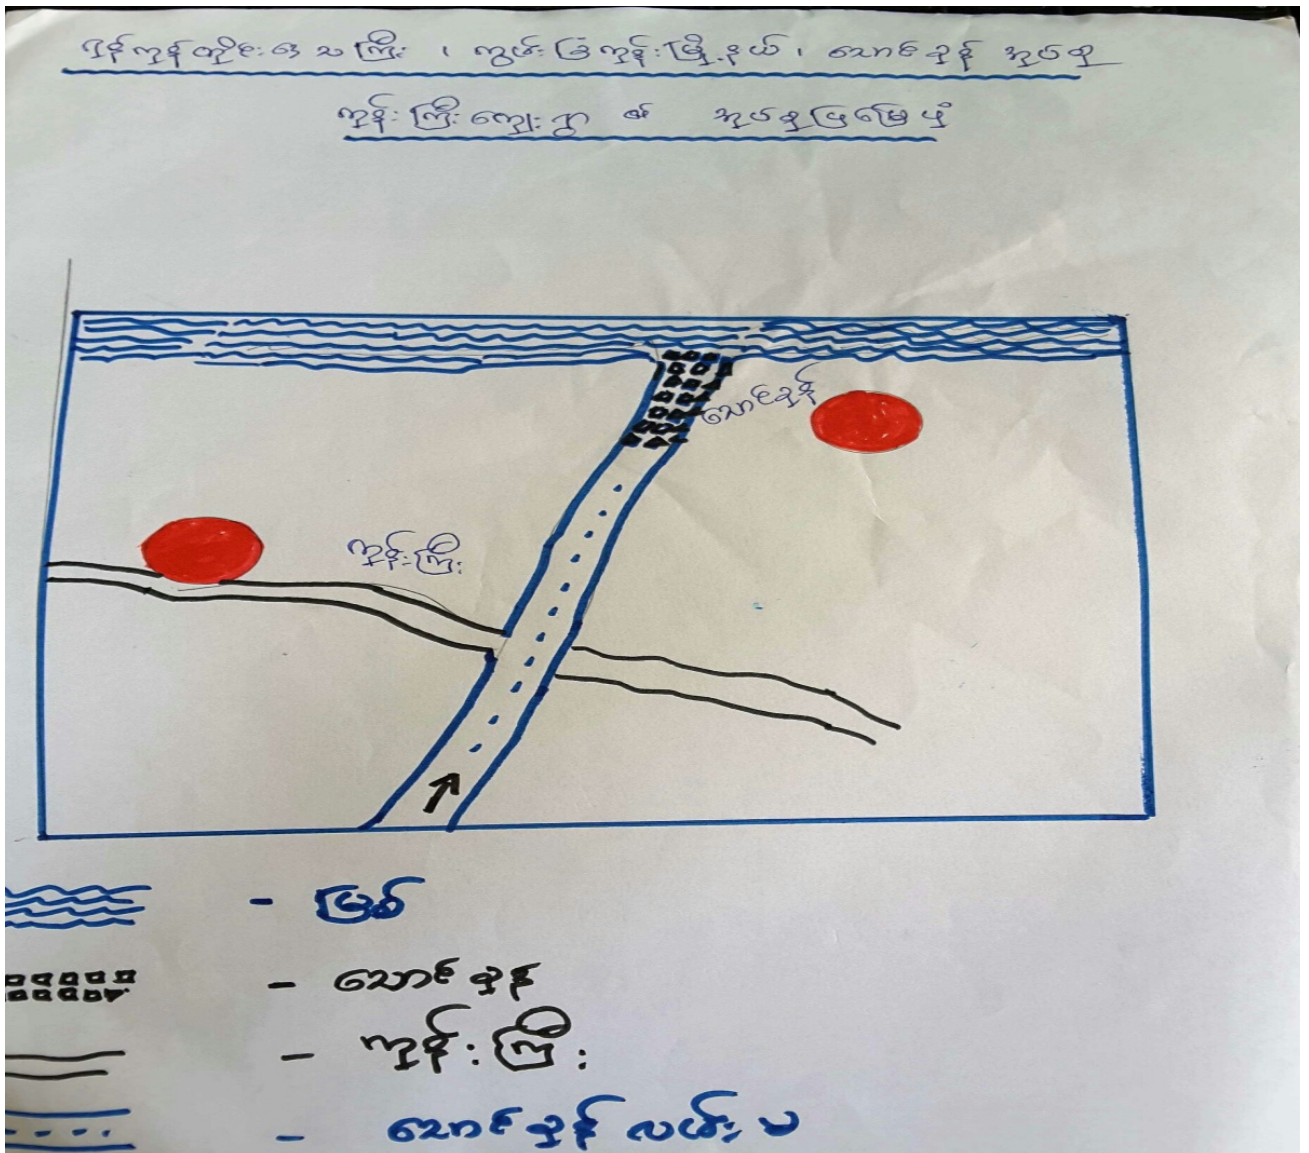 ရန်ကုန်တိုင်းဒေသကြီး ၊ ကွမ်းခြံကုန်းမြို့နယ်၊ သောင်ခုန် အုပ်စု
ကုန်းကြီးကျေးရွာ ၏ အုပ်စုပြမြေပုံ
သောင်ခုန်
ကုန်းကြီး
- မြစ်
- သောင်ခုန်
- ကုန်းကြီး
- သောင်ခုန် လမ်းမ